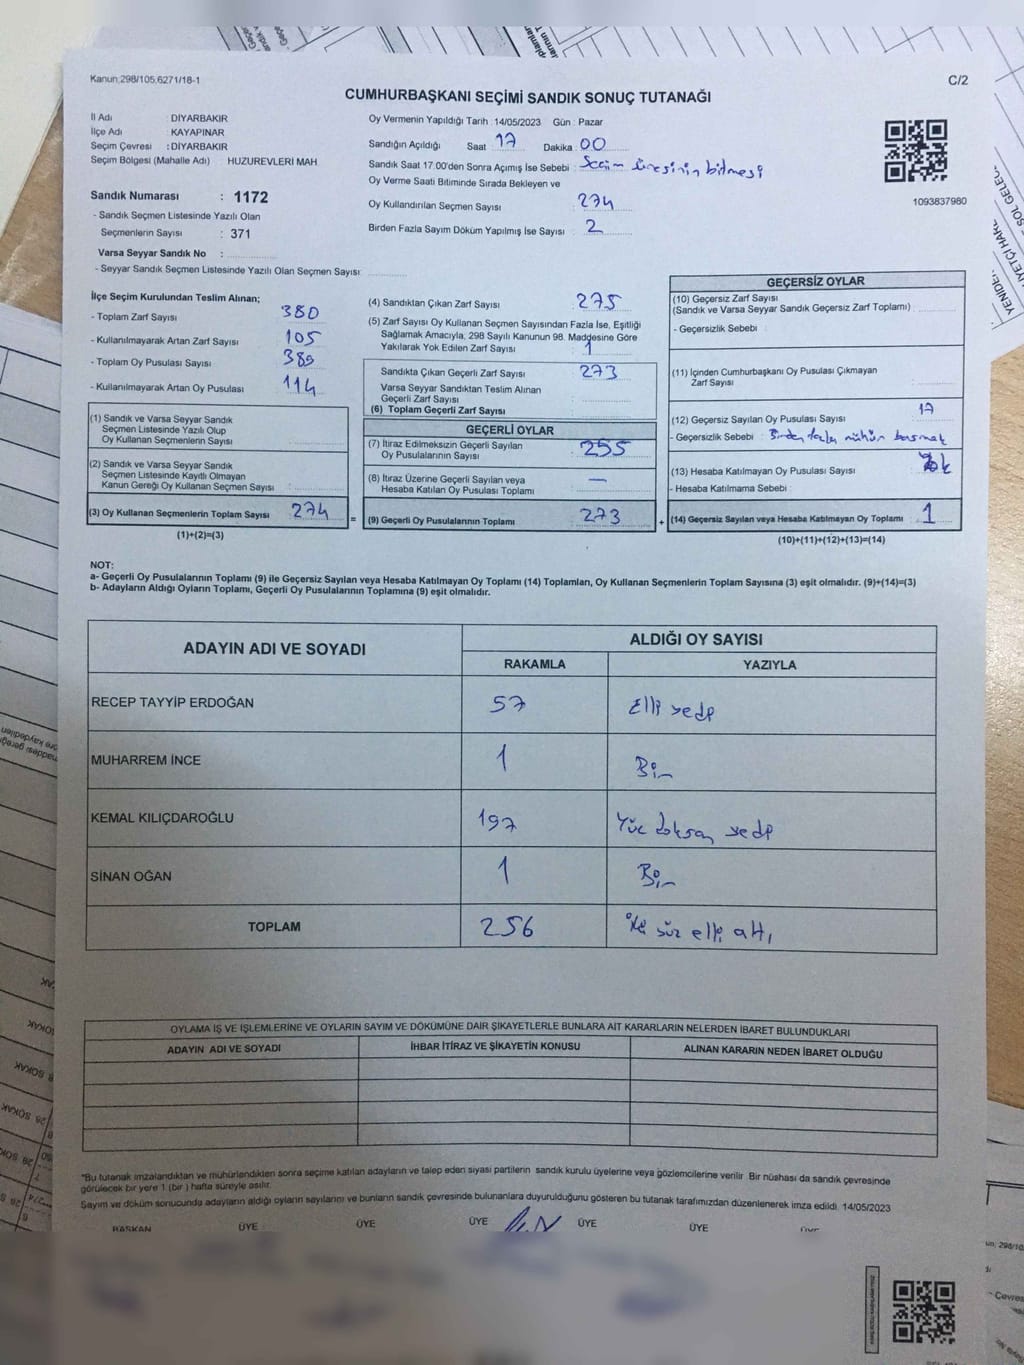 Kanun:298/105,6271/18-1
C/2
CUMHURBAŞKANI SEÇİMİ SANDIK SONUÇ TUTANAĞI
İl Adı : DİYARBAKIR
İlçe Adı : KAYAPINAR
Seçim Çevresi : DİYARBAKIR
Seçim Bölgesi (Mahalle Adı) HUZUREVLERİ MAH.
Sandık Numarası : 1172
- Sandık Seçmen Listesinde Yazılı Olan
Seçmenlerin Sayısı : 371
Varsa Seyyar Sandık No :
- Seyyar Sandık Seçmen Listesinde Yazılı Olan Seçmen Sayısı:
Oy Vermenin Yapıldığı Tarih :14/05/2023 Gün : Pazar
Sandığın Açıldığı Saat 17 Dakika 00
Sandık Saat 17.00'den Sonra Açımış İse Sebebi : Seçim süresinin bitmesi
Oy Verme Saati Bitiminde Sırada Bekleyen ve
Oy Kullandırılan Seçmen Sayısı : 274
Birden Fazla Sayım Döküm Yapılmış İse Sayısı : 2
1093837980
İlçe Seçim Kurulundan Teslim Alınan;
- Toplam Zarf Sayısı : 380
- Kullanılmayarak Artan Zarf Sayısı : 105
- Toplam Oy Pusulası Sayısı : 389
- Kullanılmayarak Artan Oy Pusulası : 114
(1) Sandık ve Varsa Seyyar Sandık
Seçmen Listesinde Yazılı Olup
Oy Kullanan Seçmenlerin Sayısı :
(2) Sandık ve Varsa Seyyar Sandık
Seçmen Listesinde Kayıtlı Olmayan
Kanun Gereği Oy Kullanan Seçmen Sayısı :
(3) Oy Kullanan Seçmenlerin Toplam Sayısı : 274
(1)+(2)=(3)
(4) Sandıktan Çıkan Zarf Sayısı : 275
(5) Zarf Sayısı Oy Kullanan Seçmen Sayısından Fazla İse, Eşitliği
Sağlamak Amacıyla, 298 Sayılı Kanunun 98. Maddesine Göre
Yakılarak Yok Edilen Zarf Sayısı : 1
Sandıkta Çıkan Geçerli Zarf Sayısı : 273
Varsa Seyyar Sandıktan Teslim Alınan
Geçerli Zarf Sayısı :
(6) Toplam Geçerli Zarf Sayısı
GEÇERLİ OYLAR
(7) İtiraz Edilmeksizin Geçerli Sayılan
Oy Pusulalarının Sayısı : 255
(8) İtiraz Üzerine Geçerli Sayılan veya
Hesaba Katılan Oy Pusulası Toplamı : —
= (9) Geçerli Oy Pusulalarının Toplamı : 273
GEÇERSİZ OYLAR
(10) Geçersiz Zarf Sayısı
(Sandık ve Varsa Seyyar Sandık Geçersiz Zarf Toplamı) :
- Geçersizlik Sebebi :
(11) İçinden Cumhurbaşkanı Oy Pusulası Çıkmayan
Zarf Sayısı
(12) Geçersiz Sayılan Oy Pusulası Sayısı : 17
- Geçersizlik Sebebi : Birden fazla mühür basmak
(13) Hesaba Katılmayan Oy Pusulası Sayısı :
- Hesaba Katılmama Sebebi :
+ (14) Geçersiz Sayılan veya Hesaba Katılmayan Oy Toplamı : 1
(10)+(11)+(12)+(13)=(14)
NOT:
a- Geçerli Oy Pusulalarının Toplamı (9) ile Geçersiz Sayılan veya Hesaba Katılmayan Oy Toplamı (14) Toplamları, Oy Kullanan Seçmenlerin Toplam Sayısına (3) eşit olmalıdır. (9)+(14)=(3)
b- Adayların Aldığı Oyların Toplamı, Geçerli Oy Pusulalarının Toplamına (9) eşit olmalıdır.
ADAYIN ADI VE SOYADI ALDIĞI OY SAYISI
RAKAMLA YAZIYLA
RECEP TAYYİP ERDOĞAN 57 Elli yedi
MUHARREM İNCE 1 Bir
KEMAL KILIÇDAROĞLU 197 Yüz doksan yedi
SİNAN OĞAN 1 Bir
TOPLAM 256 İki yüz elli altı
OYLAMA İŞ VE İŞLEMLERİNE VE OYLARIN SAYIM VE DÖKÜMÜNE DAİR ŞİKAYETLERLE BUNLARA AİT KARARLARIN NELERDEN İBARET BULUNDUKLARI
ADAYIN ADI VE SOYADI İHBAR İTİRAZ VE ŞİKAYETİN KONUSU ALINAN KARARIN NEDEN İBARET OLDUĞU
*Bu tutanak imzalandıktan ve mühürlendikten sonra seçime katılan adayların ve talep eden siyasi partilerin sandık kurulu üyelerine veya gözlemcilerine verilir Bir nüshası da sandık çevresinde
görülecek bir yere 1 (bir ) hafta süreyle asılır.
Sayım ve döküm sonucunda adayların aldığı oyların sayılarını ve bunların sandık çevresinde bulunanlara duyurulduğunu gösteren bu tutanak tarafımızdan düzenlenerek imza edildi. 14/05/2023
BAŞKAN ÜYE ÜYE ÜYE ÜYE ÜYE ÜYE